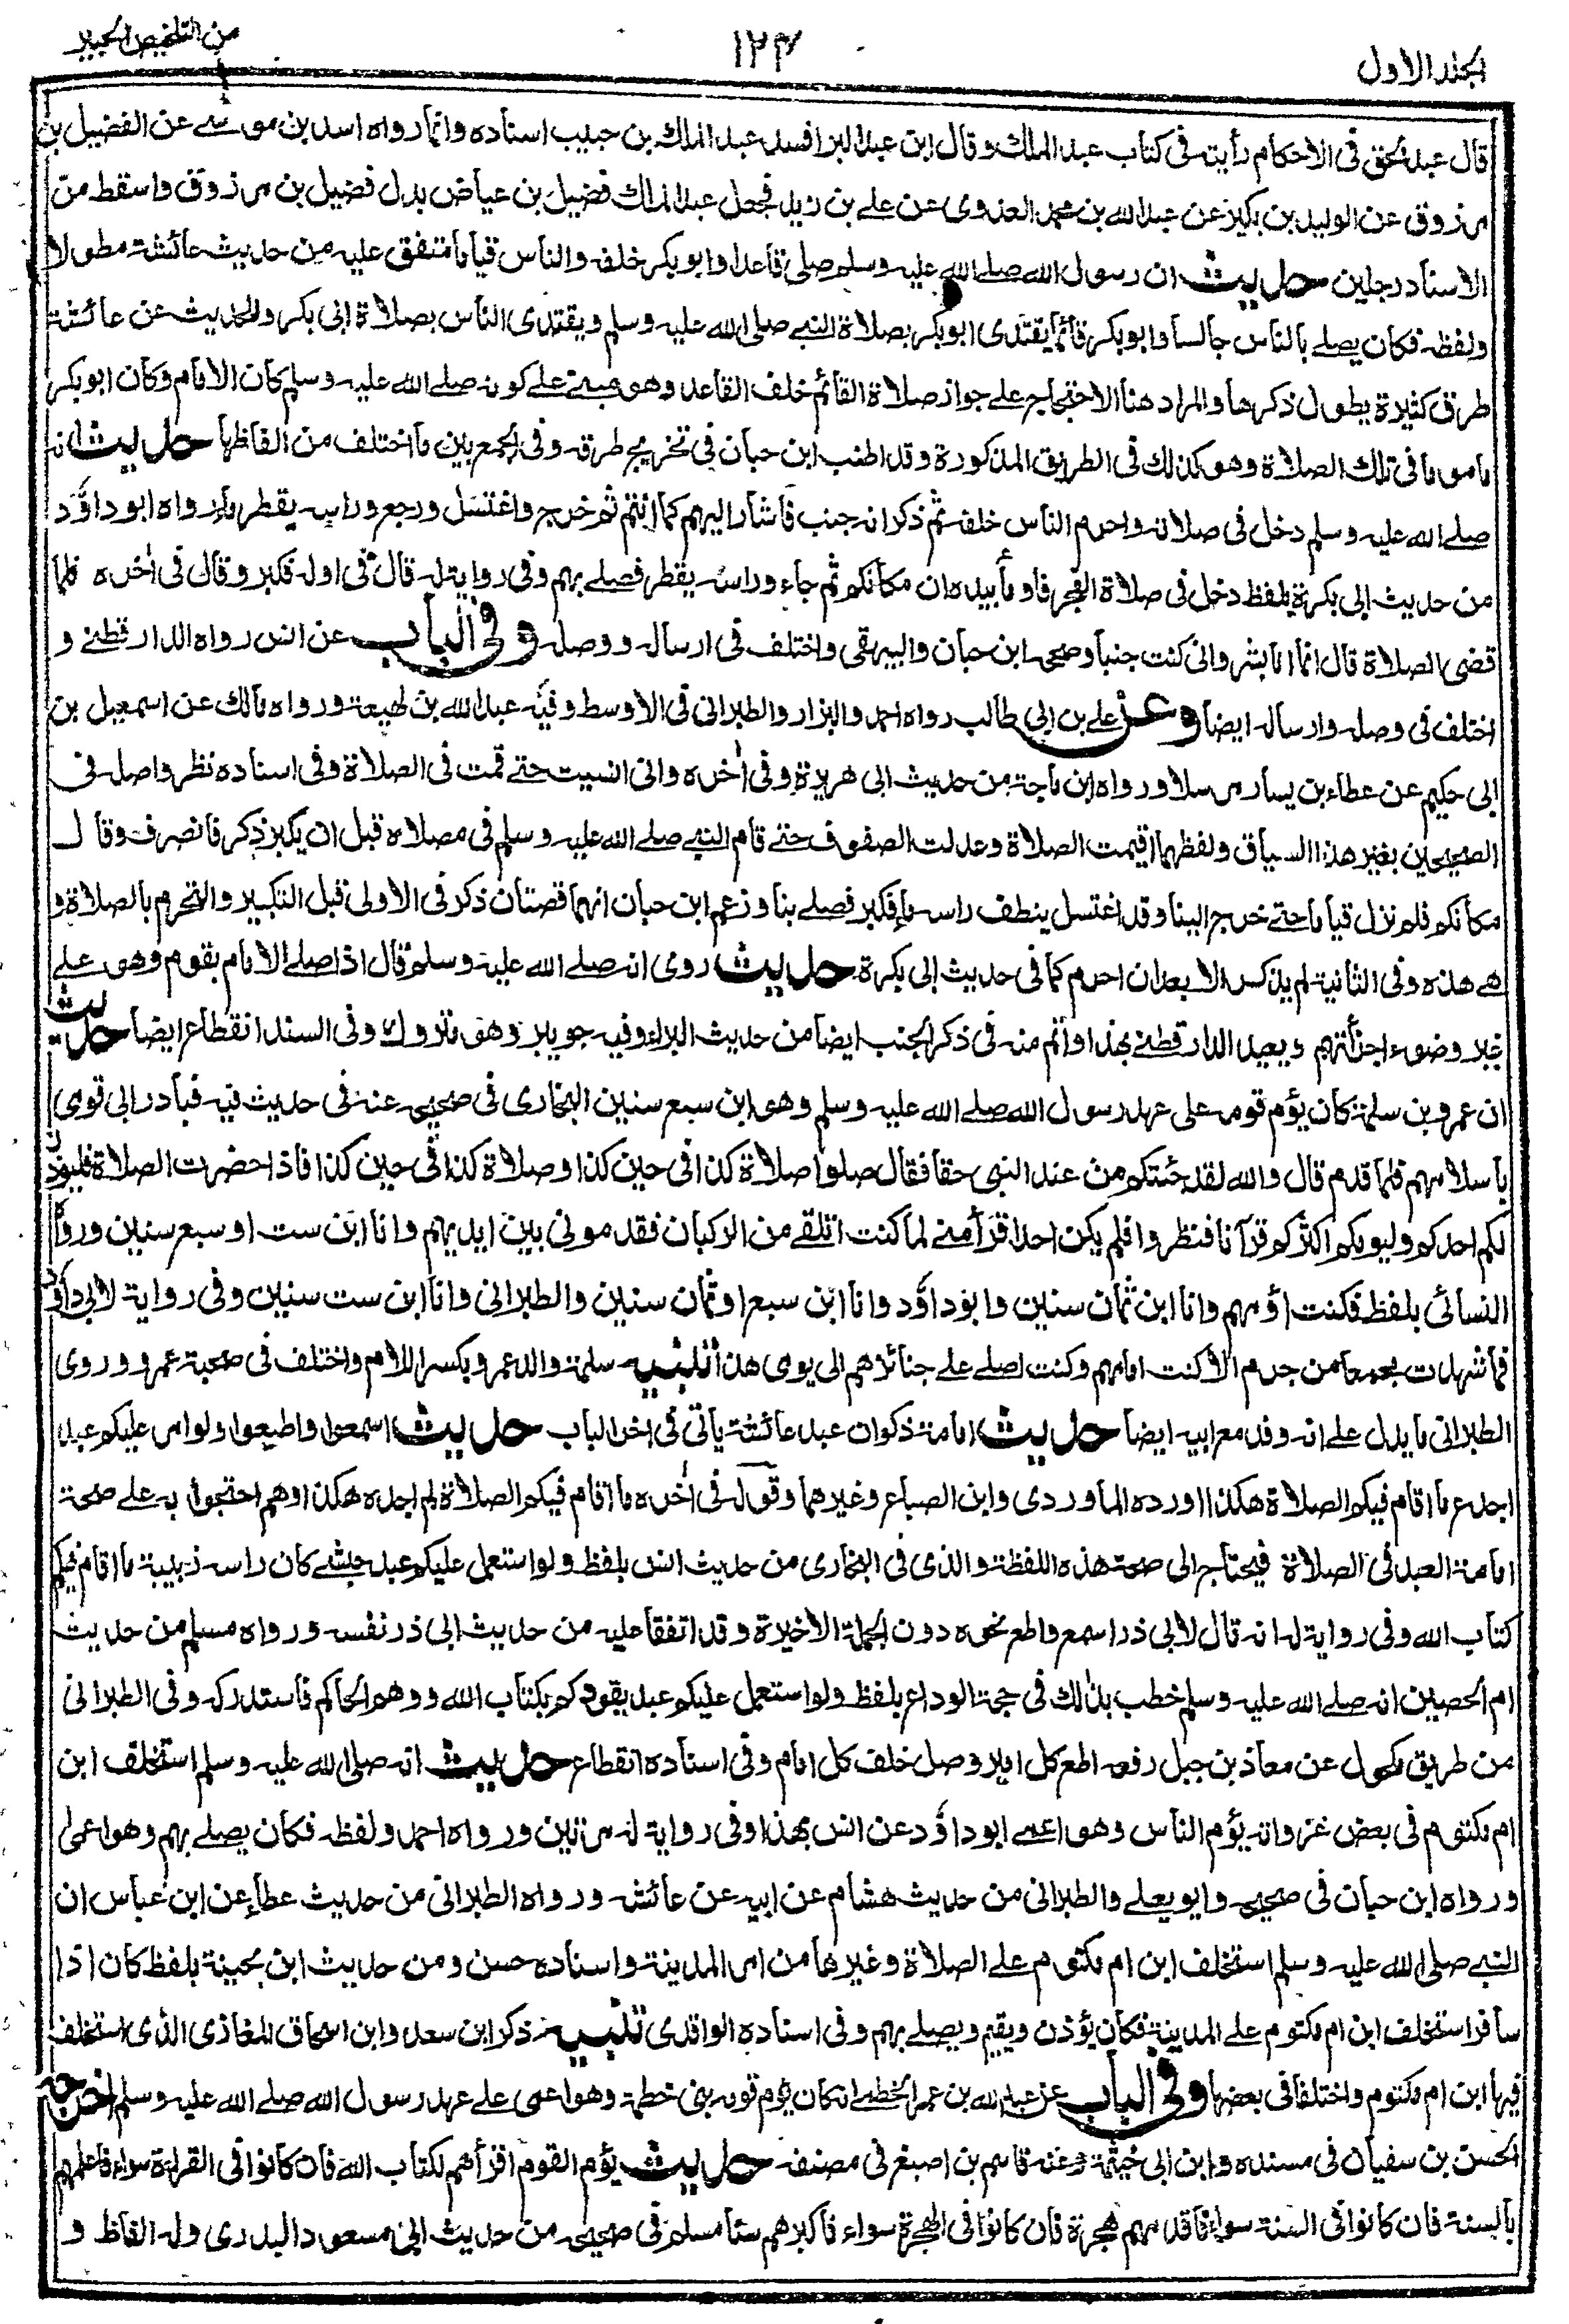 المجلد الاول
١٢٤
من التلخيص الحبير
قال عبد الحق فى الاحكام رأيته فى كتاب عبد الملك وقال ابن عبد البر افسد عبد الملك بن حبيب اسناده وانما رواه اسد بن موسے عن الفضيل بن
مرزوق عن الوليد بن بكير عن عبد الله بن محمد العدوى عن علے بن زيد فجعل عبد الملك فضيل بن عياض بدل فضيل بن مرزوق واسقط من
الاسناد رجلين حديث ان رسول الله صلے الله عليه وسلم صلى قاعدا وابو بكر خلفه والناس قياما متفق عليه من حديث عائشة مطولا
ولفظه فكان يصلے بالناس جالسا وابو بكر قائما يقتدى ابو بكر بصلاة النبے صلى الله عليه وسلم ويقتدى الناس بصلاة ابى بكر والحديث عن عائشة
طرق كثيرة يطول ذكرها والمراد هنا الاحتجاج علے جواز صلاة القائم خلف القاعد وهو مبنے علے كونه صلے الله عليه وسلم كان الامام وكان ابو بكر
ماموما فى تلك الصلاة وهو كذلك فى الطريق المذكورة وقد اطنب ابن حبان فى تخريج طرقه وفى الجمع بين ما اختلف من الفاظها حديث انه
صلے الله عليه وسلم دخل فى صلاته واحرم الناس خلفه ثم ذكر انه جنب فاشار اليهم كما انتم ثم خرج واغتسل ورجع وراسه يقطر ماء رواه ابو داؤد
من حديث ابى بكرة بلفظ دخل فى صلاة الفجر فاومأ بيده ان مكانكم ثم جاء وراسه يقطر فصلے بهم وفى رواية له قال فى اوله فكبر وقال فى اٰخره فلما
قضى الصلاة قال انما انا بشر وانى كنت جنبا وصححه ابن حبان والبيهقى واختلف فى ارساله ووصله وفى الباب عن انس رواه الدارقطنے و
اختلف فى وصله وارساله ايضا وعن علے بن ابى طالب رواه احمد والبزار والطبرانى فى الاوسط وفيه عبد الله بن لهيعة ورواه مالك عن اسمعيل بن
ابى حكيم عن عطاء بن يسار مرسلا ورواه ابن ماجة من حديث ابى هريرة وفى اٰخره وانى انسيت حتے قمت فى الصلاة وفى اسناده نظر واصله فى
الصحيحين بغير هذا السياق ولفظهما اقيمت الصلاة وعدلت الصفوف حتے قام النبے صلے الله عليه وسلم فى مصلاه قبل ان يكبر ذكر فانصرف وقال
مكانكم فلم نزل قياما حتے خرج الينا وقد اغتسل ينطف راسه ماء فكبر فصلے بنا وزعم ابن حبان انهما قصتان ذكر فى الاولى قبل التكبير والتحرم بالصلاة و
هے هذه وفى الثانية لم يذكر الا بعد ان احرم كما فى حديث ابى بكرة حديث روى انه صلے الله عليه وسلم قال اذا صلے الامام بقوم وهو علے
غير وضوء اجزأتهم ويعيد الدارقطنے بهذا واتم منه فى ذكر الجنب ايضا من حديث البراء وفيه جويبر وهو متروك وفى السند انقطاع ايضا حديث
ان عمرو بن سلمة كان يؤم قومه على عهد رسول الله صلے الله عليه وسلم وهو ابن سبع سنين البخارى فى صحيحه عنه فى حديث فيه فبادر ابى قومى
باسلامهم فلما قدم قال والله لقد جئتكم من عند النبى حقا فقال صلوا صلاة كذا فى حين كذا وصلاة كذا فى حين كذا فاذا حضرت الصلاة فليؤذن
لكم احدكم وليؤمكم اكثركم قرآنا فنظروا فلم يكن احدا قرأ منے لما كنت اتلقے من الركبان فقدمونى بين ايديهم وانا ابن ست او سبع سنين ورواه
النسائى بلفظ فكنت اؤمهم وانا ابن ثمان سنين وابو داوٗد وانا ابن سبع او ثمان سنين والطبرانى وانا ابن ست سنين وفى رواية لابى داؤد
فما شهدت مجمعا من جرم الا كنت امامهم وكنت اصلے علے جنائزهم الى يومى هذا تنبيه سلمة والد عمرو بكسر اللام واختلف فى صحبة عمرو وروى
الطبرانى ما يدل علے انه وفد مع ابيه ايضا حديث امامة ذكوان عبد عائشة ياتى فى اخر الباب حديث اسمعوا واطيعوا ولو امر عليكم عبد
اجدع ما اقام فيكم الصلاة هكذا اورده الماوردى وابن الصباغ وغيرهما وقوله فى اٰخره ما اقام فيكم الصلاة لم اجده هكذا وهم احتجوا به علے صحة
امامة العبد فى الصلاة فيحتاج الى صحة هذه اللفظة والذى فى البخارى من حديث انس بلفظ ولو استعمل عليكم عبد حبشے كان راسه زبيبة ما اقام فيكم
كتاب الله وفى رواية له انه قال لابى ذر اسمع واطع نحوه دون الجملة الاخيرة وقد اتفقا عليه من حديث ابى ذر نفسه ورواه مسلم من حديث
ام الحصين انه صلے الله عليه وسلم خطب بذلك فى حجة الوداع بلفظ ولو استعمل عليكم عبد يقودكم بكتاب الله ووهم الحاكم فاستدركه وفى الطبرانى
من طريق مكحول عن معاذ بن جبل رفعه اطع كل امير وصل خلف كل امام وفى اسناده انقطاع حديث انه صلى الله عليه وسلم استخلف ابن
ام مكتوم فى بعض غزواته يؤم الناس وهو اعمے ابو داوٗد عن انس بهذا وفى رواية له مرتين ورواه احمد ولفظه فكان يصلے بهم وهو اعمىٰ
ورواه ابن حبان فى صحيحه وابو يعلے والطبرانى من حديث هشام عن ابيه عن عائشه ورواه الطبرانى من حديث عطاء عن ابن عباس ان
النبے صلى الله عليه وسلم استخلف ابن ام مكتوم علے الصلاة وغيرها من امر المدينة واسناده حسن ومن حديث ابن بحينة بلفظ كان اذا
سافر استخلف ابن ام مكتوم علے المدينة فكان يؤذن ويقيم ويصلے بهم وفى اسناده الواقدى تنبيه ذكر ابن سعد وابن اسحاق المغازى الذى استخلف
فيها ابن ام مكتوم واختلفا فى بعضها وفى الباب عن عبد الله بن عمير الخطمے انه كان يؤم قومه بنى خطمة وهو اعمى علے عهد رسول الله صلے الله عليه وسلم اخرجه
الحسن بن سفيان فى مسنده وابن ابى خيثمة وعنه قاسم بن اصبغ فى مصنفه حديث يؤم القوم اقرأهم لكتاب الله فان كانوا فى القراءة سواء فاعلمهم
بالسنة فان كانوا فى السنة سواء فاقدمهم هجرة فان كانوا فى الهجرة سواء فاكبرهم سنا مسلم فى صحيحه من حديث ابى مسعود البدرى وله الفاظ و